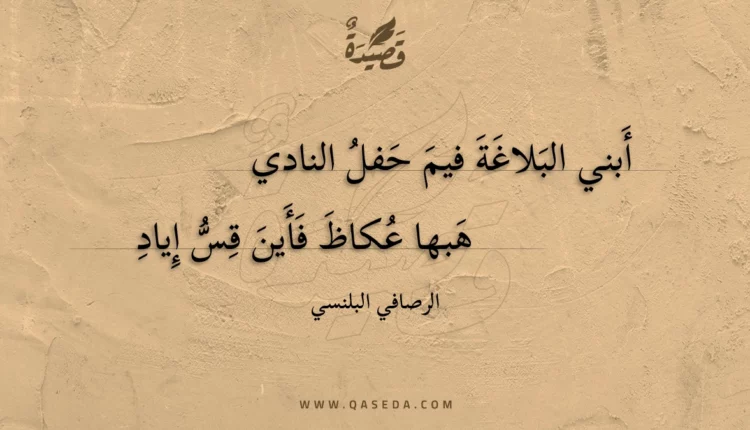 قَصِيْدَةٌ
أَبني البَلاغَةَ فيمَ حَفلُ النادي
هَبها عُكاظَ فَأَينَ قِسُّ إِيادِ
الرصافي البلنسي
WWW.QASEDA.COM